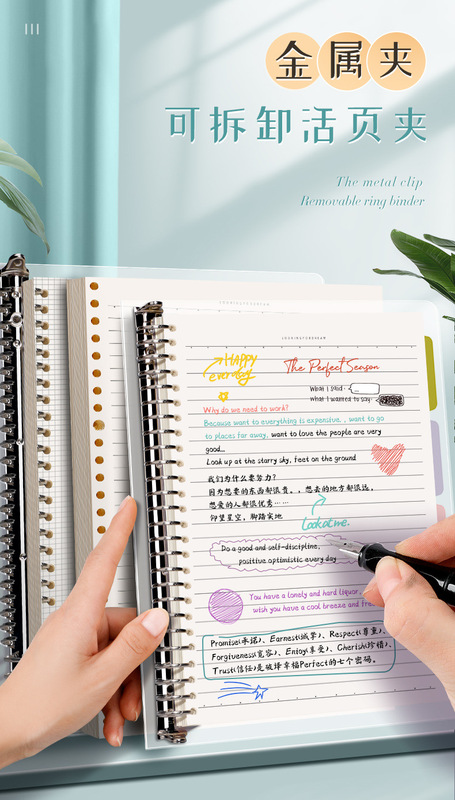 金属夹
可拆卸活页夹
The metal clip
Removable ring binder
Happy
everyday
The Perfect Season
What I said:
What I wanted to say:
Why do we need to work?
Because want to everything is expensive. , want to go
to places far away, want to love the people are very
good...
Look up at the starry sky, feet on the ground
我们为什么要努力?
因为想要的东西都很贵。, 想去的地方都很远,
想爱的人都很优秀······
仰望星空,脚踏实地
Look at me.
Do a good and self-discipline,
positive optimistic every day
You have a lonely and hard liquor,
wish you have a cool breeze and fre
Promise(承诺)、Earnest(诚挚)、Respect(尊重)、
Forgiveness(宽容)、Enjoy(享受)、Cherish(珍惜)、
Trust(信任)是破译幸福Perfect的七个密码。